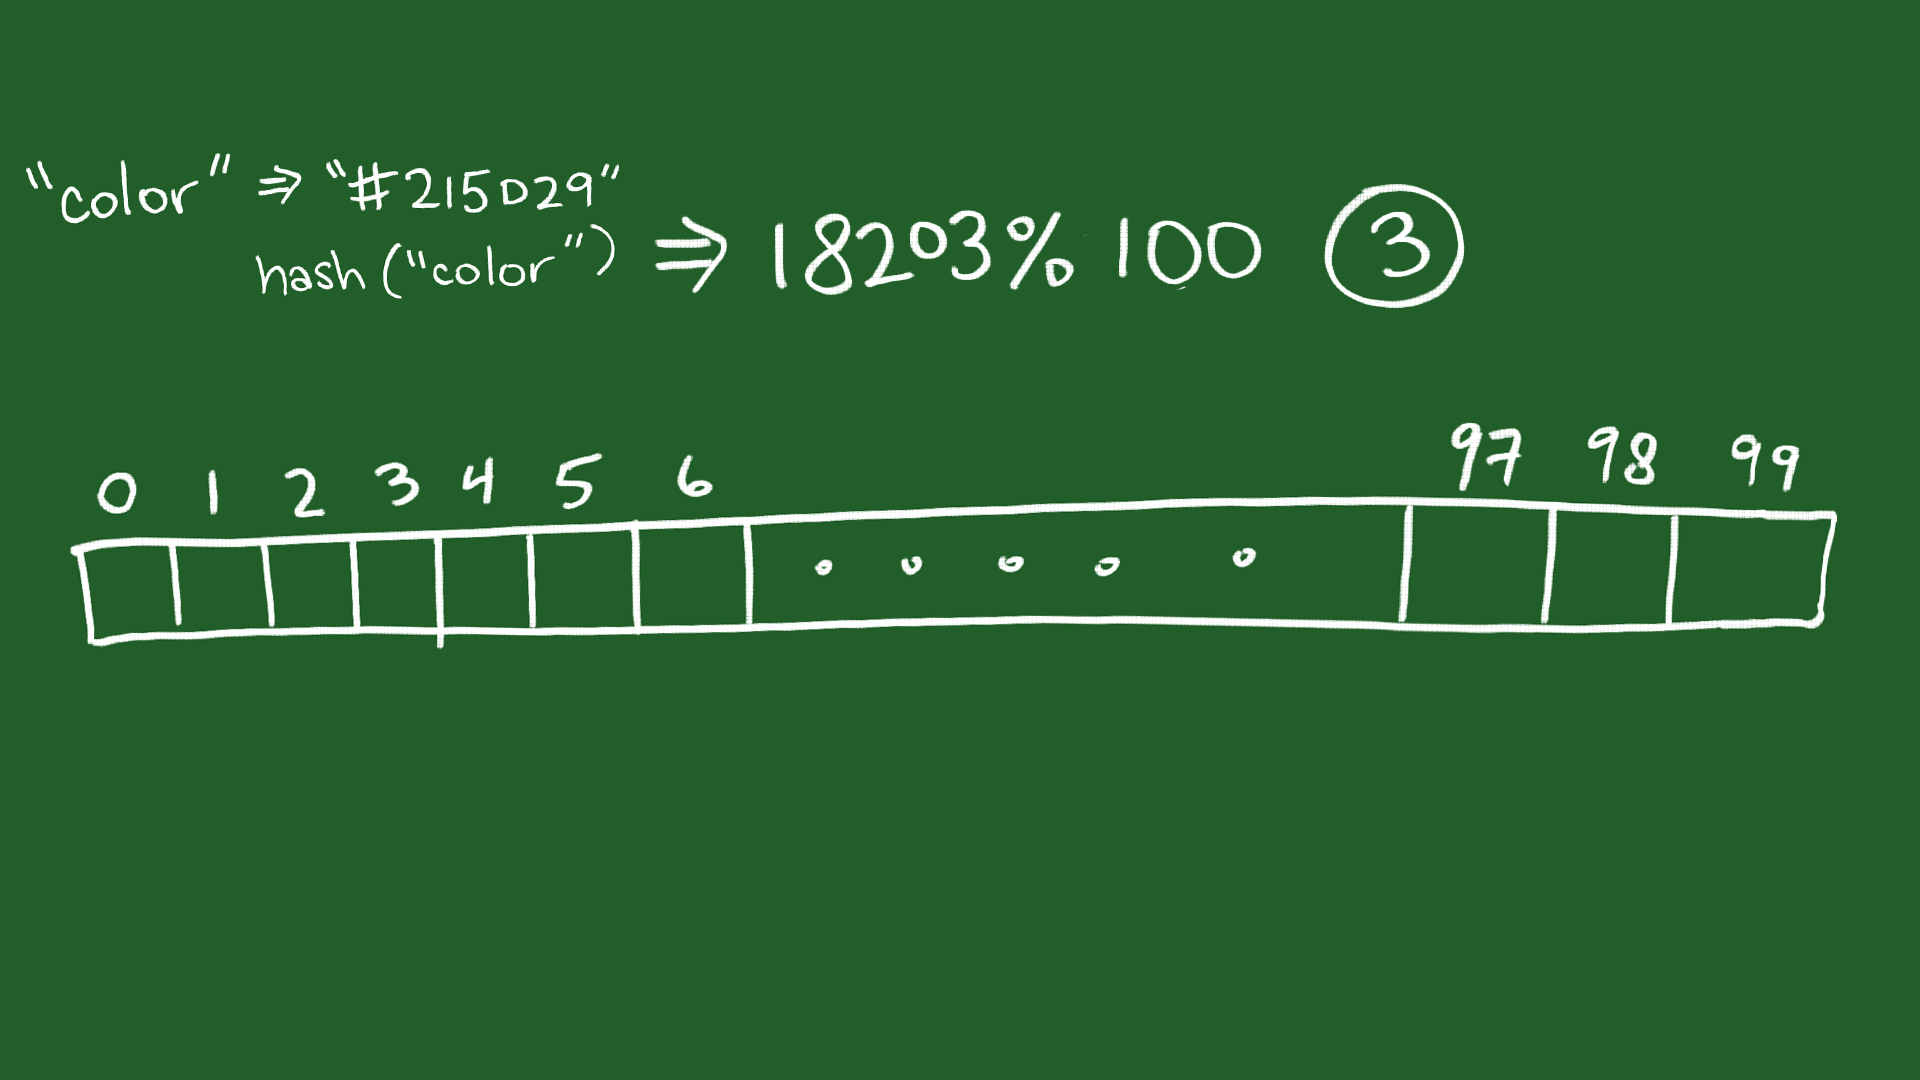 "color" ⇒ "#215D29"
hash("color") ⇒ 18203% 100 3
0 1 2 3 4 5 6 97 98 99